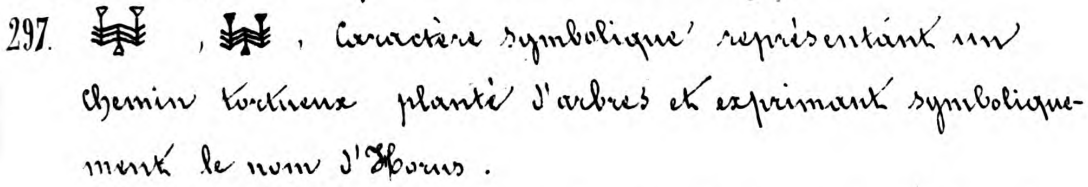 297. , , Caractère symbolique représentant un
chemin tortueux planté d'arbres et exprimant symbolique-
ment le nom d'Horus.